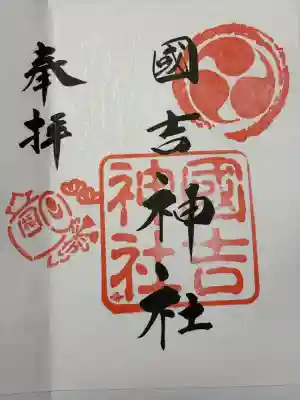 國吉神社
奉拝
國吉
神社